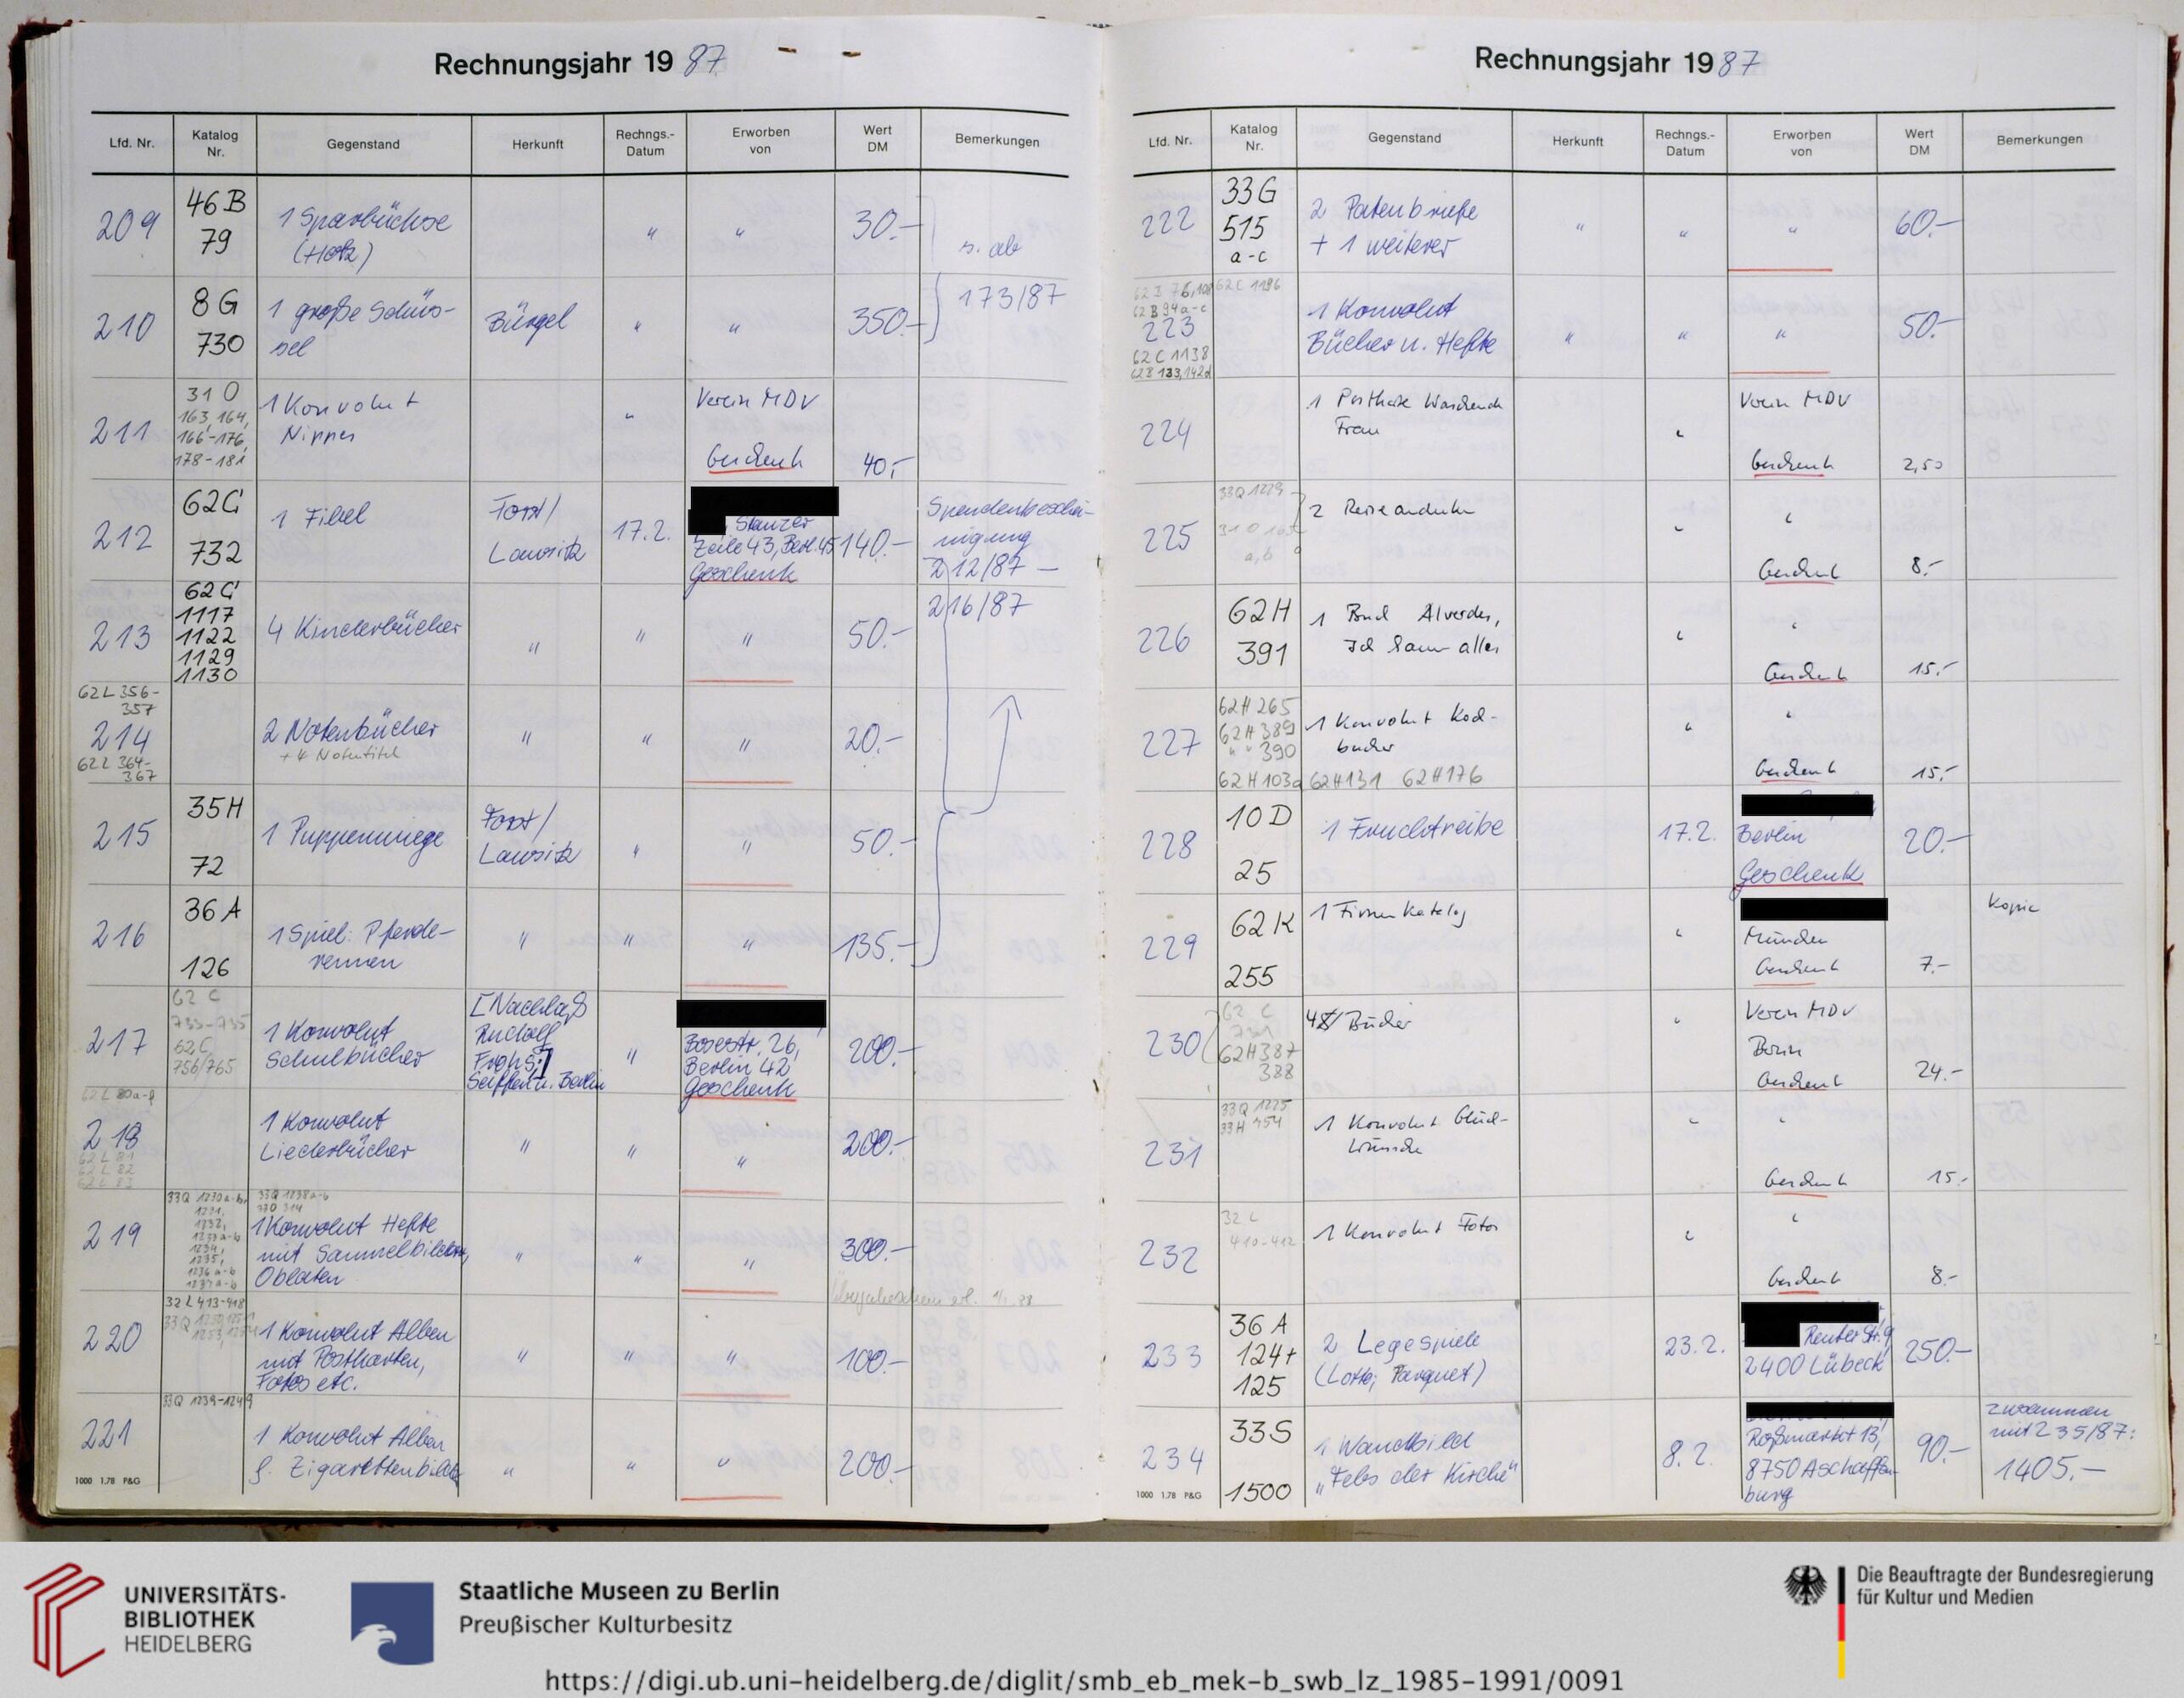 Rechnungsjahr 1987
Lfd. Nr. Katalog Nr. Gegenstand Herkunft Rechngs.-Datum Erworben von Wert DM Bemerkungen
209 46 B 79 1 Sparbüchse (Holz) " " 30.- s. ab
210 8 G 730 1 große Schüssel Bürgel " " 350.- 173/87
211 31 O 163, 164, 166-176, 178-181 1 Konvolut Nippes " Verein MDV Geschenk 40,-
212 62 C 732 1 Fibel Forst/ Lausitz 17.2. Stanzer Zeile 43, Berl. 45 Geschenk 140.- Spendenbescheinigung 212/87 -
213 62 C 1117 1122 1129 1130 4 Kinderbücher " " " 50.- 216/87
62 L 356-357
214 2 Notenbücher + 4 Notentitel " " " 20.-
62 L 364-367
215 35 H 72 1 Puppenwiege Forst/ Lausitz " " 50.-
216 36 A 126 1 Spiel: Pferderennen " " " 135.-
217 62 C 733-735 62 C 756/765 1 Konvolut Schulbücher [Nachlaß Rudolf Seiffen u. Berlin " Boserstr. 26, Berlin 42 Geschenk 200.-
62 L 80a-f
218 1 Konvolut Liederbücher " " " 200.-
62 L 81
62 L 82
62 L 83
219 33 Q 1230 a-b, 1231, 1232, 1233 a-b 1234, 1235, 1236 a-b 1237 a-b 33 Q 1238 a-b 1 Konvolut Hefte mit Sammelbildern, Oblaten " " " 300.-
220 32 L 413-418 33 Q 1 Konvolut Alben mit Postkarten, Fotos etc. " " " 100.-
221 33 Q 1239-1249 1 Konvolut Alben f. Zigarettenbilder " " " 200.-
1000 1.78 P&G
Rechnungsjahr 1987
Lfd. Nr. Katalog Nr. Gegenstand Herkunft Rechngs.-Datum Erworben von Wert DM Bemerkungen
222 33 G 515 a-c 2 Patenbriefe + 1 weiterer " " " 60.-
62 C 1196
62 B 94 a-c
223 1 Konvolut Bücher u. Hefte " " " 50.-
62 C 1138
62 B 133, 142d
224 1 Postkarte Waschende Frau " Verein MDV Geschenk 2,50
225 33 Q 1229 31 O a, b 2 Reiseandenken " " Geschenk 8.-
226 62 H 391 1 Band Alverdes, Ich kann alles " " Geschenk 15.-
227 62 H 265 62 H 389 " " 390 1 Konvolut Kochbücher " " Geschenk 15.-
62 H 103a 62 H 131 62 H 176
228 10 D 25 1 Fruchtreibe 17.2. Berlin Geschenk 20.-
229 62 K 255 1 Firmenkatalog " München Geschenk 7.- Kopie
230 62 C 62 H 387 388 4 Bücher " Verein MDV Bonn Geschenk 24.-
231 33 Q 1225 33 H 454 1 Konvolut Glückwünsche " " Geschenk 15.-
232 32 L 410-412 1 Konvolut Fotos " " Geschenk 8.-
233 36 A 124+ 125 2 Legespiele (Lotto, Parquet) 23.2. Reuter Str. 9 2400 Lübeck 250.-
234 33 S 1500 1 Wandbild "Fels der Kirche" 8.2. Roßmarkt 13, 8750 Aschaffenburg 90.- zusammen mit 235/87: 1405.-
1000 1.78 P&G
UNIVERSITÄTS-
BIBLIOTHEK
HEIDELBERG
Staatliche Museen zu Berlin
Preußischer Kulturbesitz
Die Beauftragte der Bundesregierung
für Kultur und Medien
https://digi.ub.uni-heidelberg.de/diglit/smb_eb_mek-b_swb_lz_1985-1991/0091